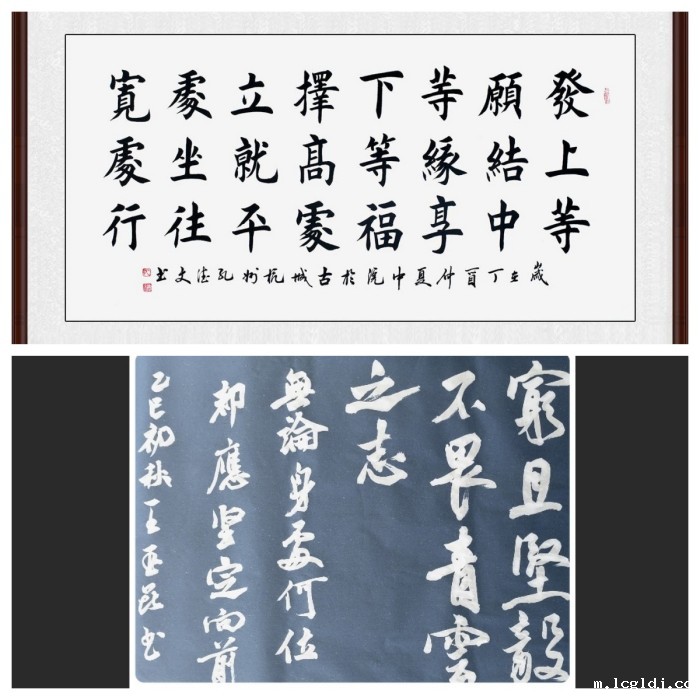 發上等
願結中
等緣享
下等福
擇高處
立就平
處坐往
寬處行
歲在丁酉仲夏中於古城杭州孔德文書
窮且堅毅
不畏青雲
之志
無論身處何位
却應坚定向前
乙巳初秋王書
m.lcgldj.co